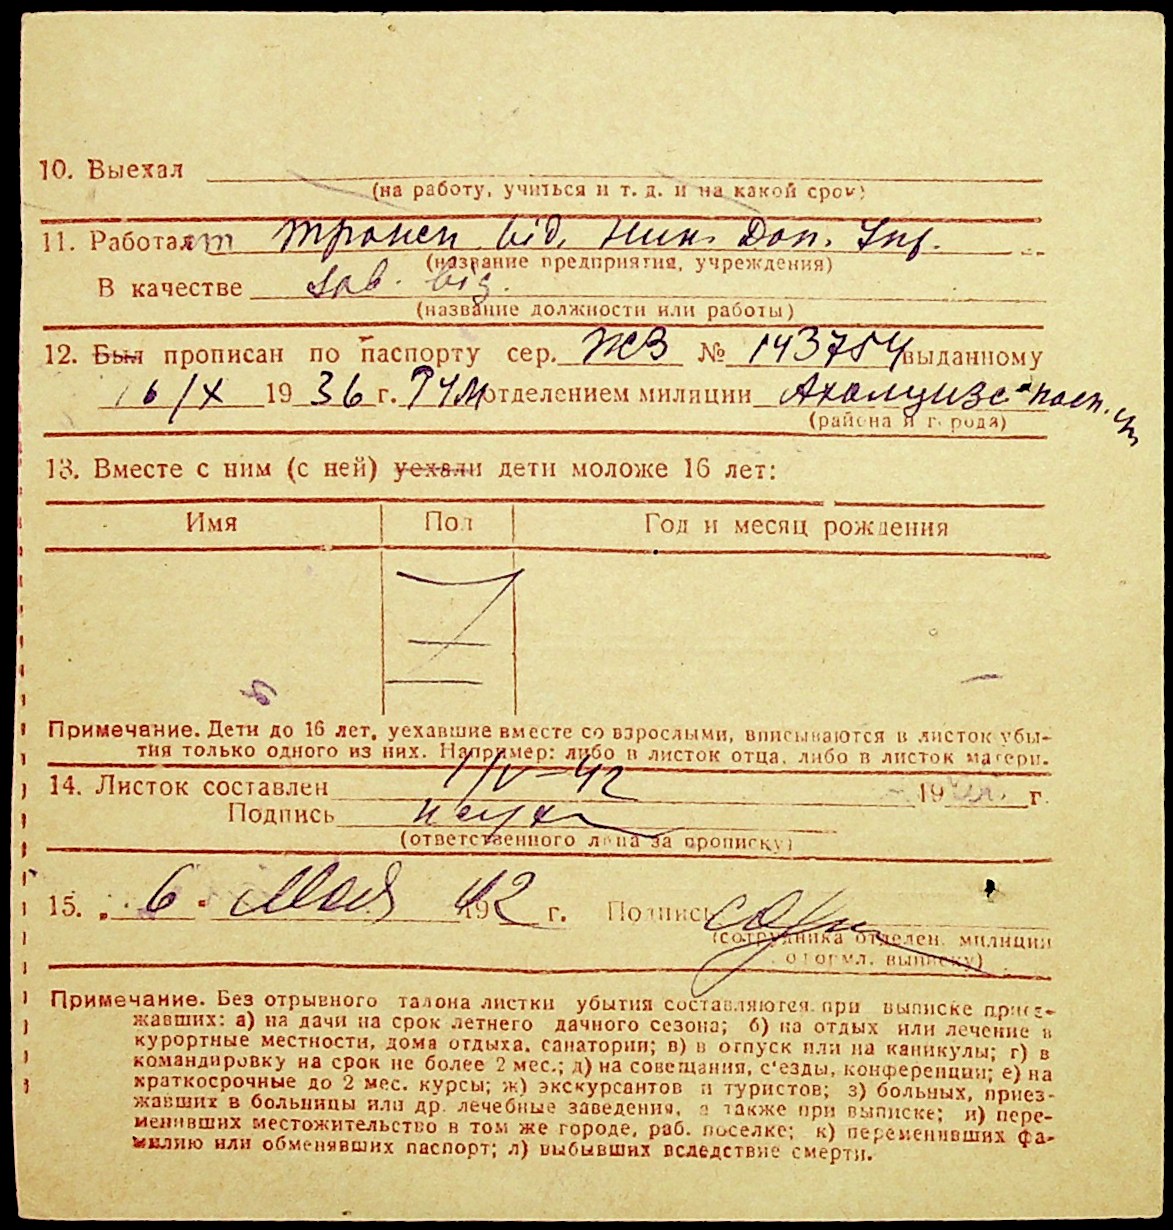 10. Выехал
(на работу, учиться и т. д. и на какой срок)
11. Работал
(название предприятия, учреждения)
В качестве
(название должности или работы)
12. Был прописан по паспорту сер. ЖЗ № 143754 выданному
16/X 1936 г. РУМ отделением милиции
(района и города)
13. Вместе с ним (с ней) уехали дети моложе 16 лет:
Имя Пол Год и месяц рождения
Примечание. Дети до 16 лет, уехавшие вместе со взрослыми, вписываются в листок убы-
тия только одного из них. Например: либо в листок отца, либо в листок матери.
14. Листок составлен 1/V-42 19 г.
Подпись
(ответственного лица за прописку)
15. „6“ Мая 1942 г. Подпись
(сотрудника отделен. милиции
оформл. выписку)
Примечание. Без отрывного талона листки убытия составляются при выписке приез-
жавших: а) на дачи на срок летнего дачного сезона; б) на отдых или лечение в
курортные местности, дома отдыха, санатории; в) в отпуск или на каникулы; г) в
командировку на срок не более 2 мес.; д) на совещания, с'езды, конференции; е) на
краткосрочные до 2 мес. курсы; ж) экскурсантов и туристов; з) больных, приез-
жавших в больницы или др. лечебные заведения, а также при выписке; и) пере-
менивших местожительство в том же городе, раб. поселке; к) переменивших фа-
милию или обменявших паспорт; л) выбывших вследствие смерти.